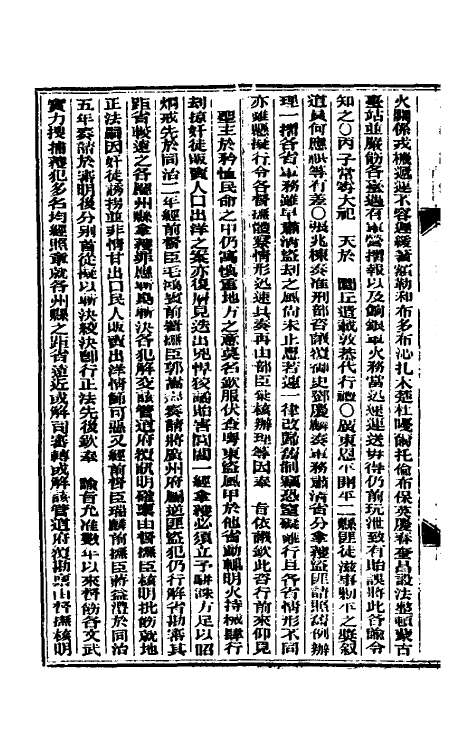 火關係戎機遲運不容遲緩著額勒和布多布沁扎木楚杜嘎爾托倫布保英慶春奎昌設法整頓蒙古
臺站並嚴飭各臺遇有軍營摺報以及餉銀軍火務當迅速運送毋得仍前玩泄致有貽誤將此各諭令
知之〇丙子常雩大祀　天於　圜丘遣載敦恭代行禮〇廣東恩平開平二縣匪徒滋事勦平之獎敘
道員何應祺等有差〇張兆棟奏准刑部咨議覆御史鄧慶麟奏軍務肅清省分拿獲盜匪請照舊例辦
理一摺各省軍務雖早肅清盜刦之風尚未止息若遽一律改歸舊制竊恐窒礙難行且各省情形不同
亦難懸擬行令各督撫體察情形迅速具奏再由部臣彙核辦理等因奏　旨依議欽此咨行前來仰見
聖主於矜恤民命之中仍寓慎重地方之意莫名欽服伏查粵東盜風甲於他省動輒明火持械肆行
刦掠奸徒販賣人口出洋之案亦復層見迭出兇悍狡譎貽害閭閻一經拿獲必須立予駢誅方足以昭
炯戒先於同治二年經前督臣毛鴻賓前署撫臣郭嵩燾奏請將廣州府屬逆匪盜犯仍行解省勘審其
距省較遠之各廳州縣拿獲罪應斬梟斬決各犯解交該管道府覆訊明確稟由督撫臣核明批飭就地
正法嗣因奸徒誘拐並非情甘出口民人販賣出洋情節可惡又經前督臣瑞麟前撫臣蔣益澧於同治
五年奏請於審明後分別首從擬以斬決絞決卽行正法先後欽奉　諭旨允准數年以來督飭各文武
實力搜捕獲犯多名均經照章就各州縣之距省遠近或解司審轉或解該管道府覆勘稟由督撫核明